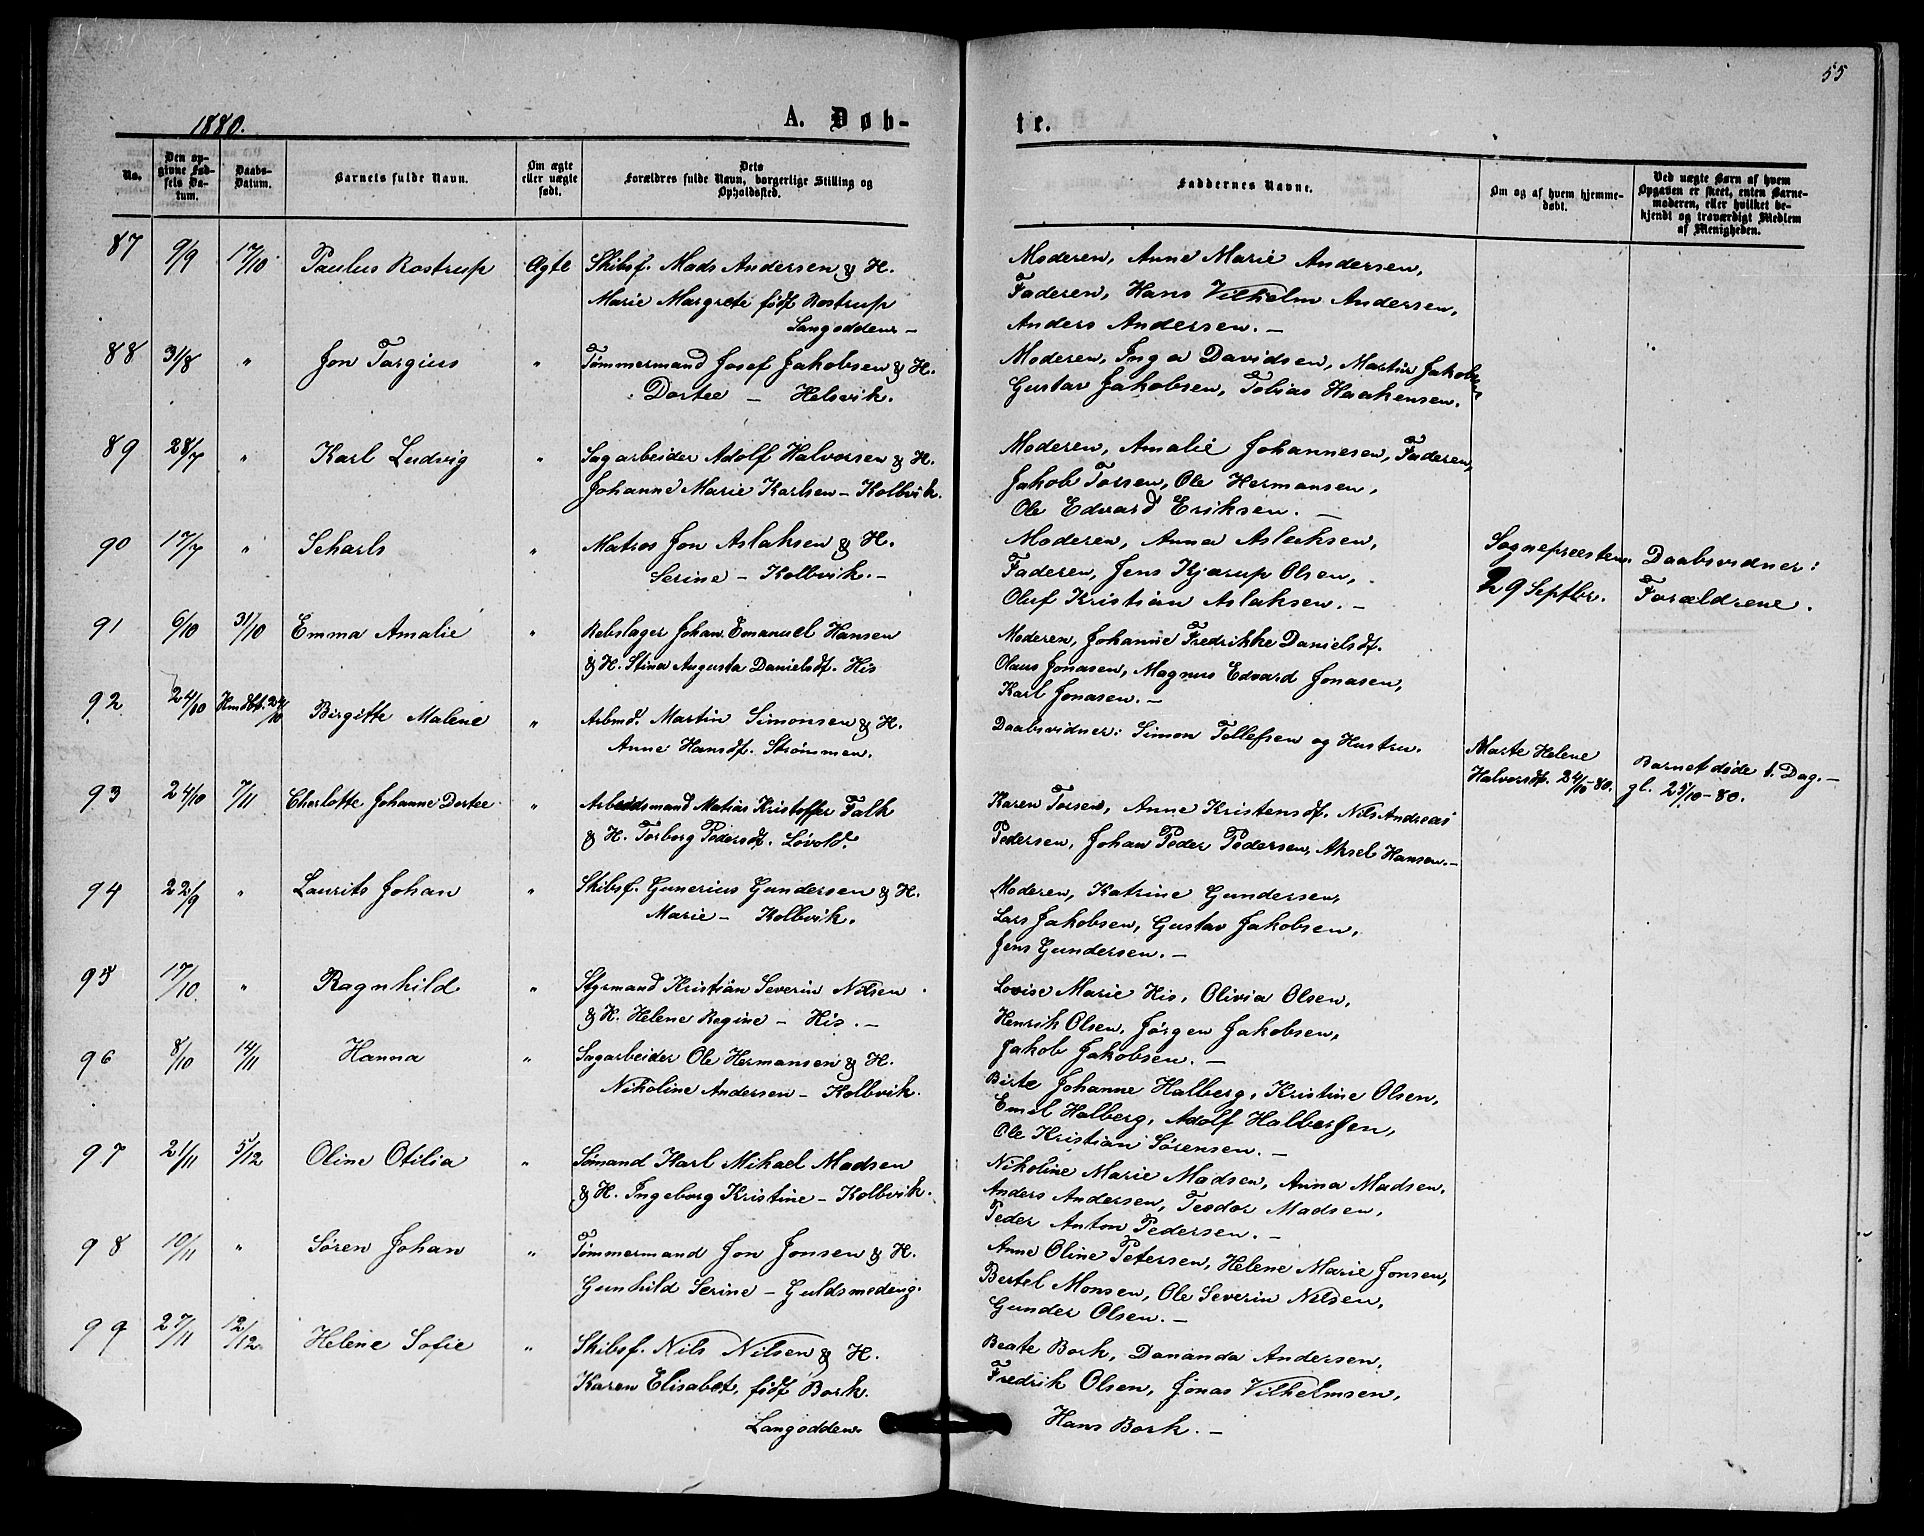 55
1880.
A. Døb-
te.
No.
Den op-
givne Fød-
sels Da-
tum.
Daabs-
Datum.
Barnets fulde Navn.
Om ægte
eller uægte
født.
Dets
Forældres fulde Navn, borgerlige Stilling og
Opholdssted.
Faddernes Navne.
Om og af hvem hjemme-
døbt.
Ved uægte Børn af hvem
Opgaven er skeet, enten Barne-
moderen, eller hvilket be-
kjendt og troværdigt Medlem
af Menigheden.
87 9/9 17/10 Paulus Rostrup Ægte Skibsf. Mads Andersen & H.
Marie Margrete født Rostrup
Langodden -
Moderen, Anne Marie Andersen,
Faderen, Hans Vilhelm Andersen,
Anders Andersen. -
88 31/8 " Jon Targius " Tømmermand Josef Jakobsen & H.
Dortee - Helsvik.
Moderen, Inga Davidsen, Martin Jakobsen
Gustav Jakobsen, Tobias Haakensen.
89 28/7 " Karl Ludvig " Sagarbeider Adolf Halvorsen & H.
Johanne Marie Karlsen - Kolbvik.
Moderen, Amalie Johannesen, Faderen,
Jakob Torsen, Ole Hermansen,
Ole Edvard Eriksen. -
90 17/7 " Scharls " Matros Jon Aslaksen & H.
Serine - Kolbvik. -
Moderen, Anna Aslaksen,
Faderen, Jens Kjærup Olsen,
Oluf Kristian Aslaksen. -
Sognepresten
29 Septbr.
Daabsvidner:
Forældrene.
91 6/10 31/10 Emma Amalie " Rebslager Johan Emanuel Hansen
& H. Stina Augusta Danielsdt. His
Moderen, Johanne Fredrikke Danielsdt.
Olaus Jonasen, Magnus Edvard Jonasen,
Karl Jonasen. -
92 24/10 Hmdbt. 24/10 Birgitte Malene " Arbmd. Martin Simonsen & H.
Anne Hansdt. Strømmen.
Daabsvidner: Simon Tollefsen og Hustru.
Marte Helene
Halvorsdt. 24/10-80.
Barnet døde s. Dag. -
gl. 25/10-80.
93 24/10 7/11 Charlotte Johanne Dortee " Arbeidsmand Matias Kristoffer Falk
& H. Torborg Pedersdt. Løvold.
Karen Torsen, Anne Kristensdt. Nils Andreas
Pedersen, Johan Peder Pedersen, Aksel Hansen. -
94 22/9 " Laurits Johan " Skibsf. Gunerius Gundersen & H.
Marie - Kolbvik.
Moderen, Katrine Gundersen,
Lars Jakobsen, Gustav Jakobsen,
Jens Gundersen. -
95 17/10 " Ragnhild " Styrmand Kristian Severin Nilsen
& H. Helene Regine - His. -
Lovise Marie His, Olivia Olsen,
Henrik Olsen, Jørgen Jakobsen,
Jakob Jakobsen. -
96 8/10 14/11 Hanna " Sagarbeider Ole Hermansen & H.
Nikoline Andersen - Kolbvik.
Birte Johanne Halberg, Kristine Olsen,
Emel Halberg, Adolf Halbersen,
Ole Kristian Sørensen. -
97 21/11 5/12 Oline Otilia " Sømand Karl Mikael Madsen
& H. Ingeborg Kristine - Kolbvik.
Nikoline Marie Madsen, Anna Madsen,
Anders Andersen, Teodor Madsen,
Peder Anton Pedersen. -
98 10/11 " Søren Johan " Tømmermand Jon Jonsen & H.
Gunhild Serine - Guldsmedeng.
Anne Oline Petersen, Helene Marie Jonsen,
Bertel Monsen, Ole Severin Nilsen,
Gunder Olsen. -
99 27/11 12/12 Helene Sofie " Skibsf. Nils Nilsen & H.
Karen Elisabet, født Bork.
Langodden.
Beate Bork, Dananda Andersen,
Fredrik Olsen, Jonas Vilhelmsen,
Hans Bork. -